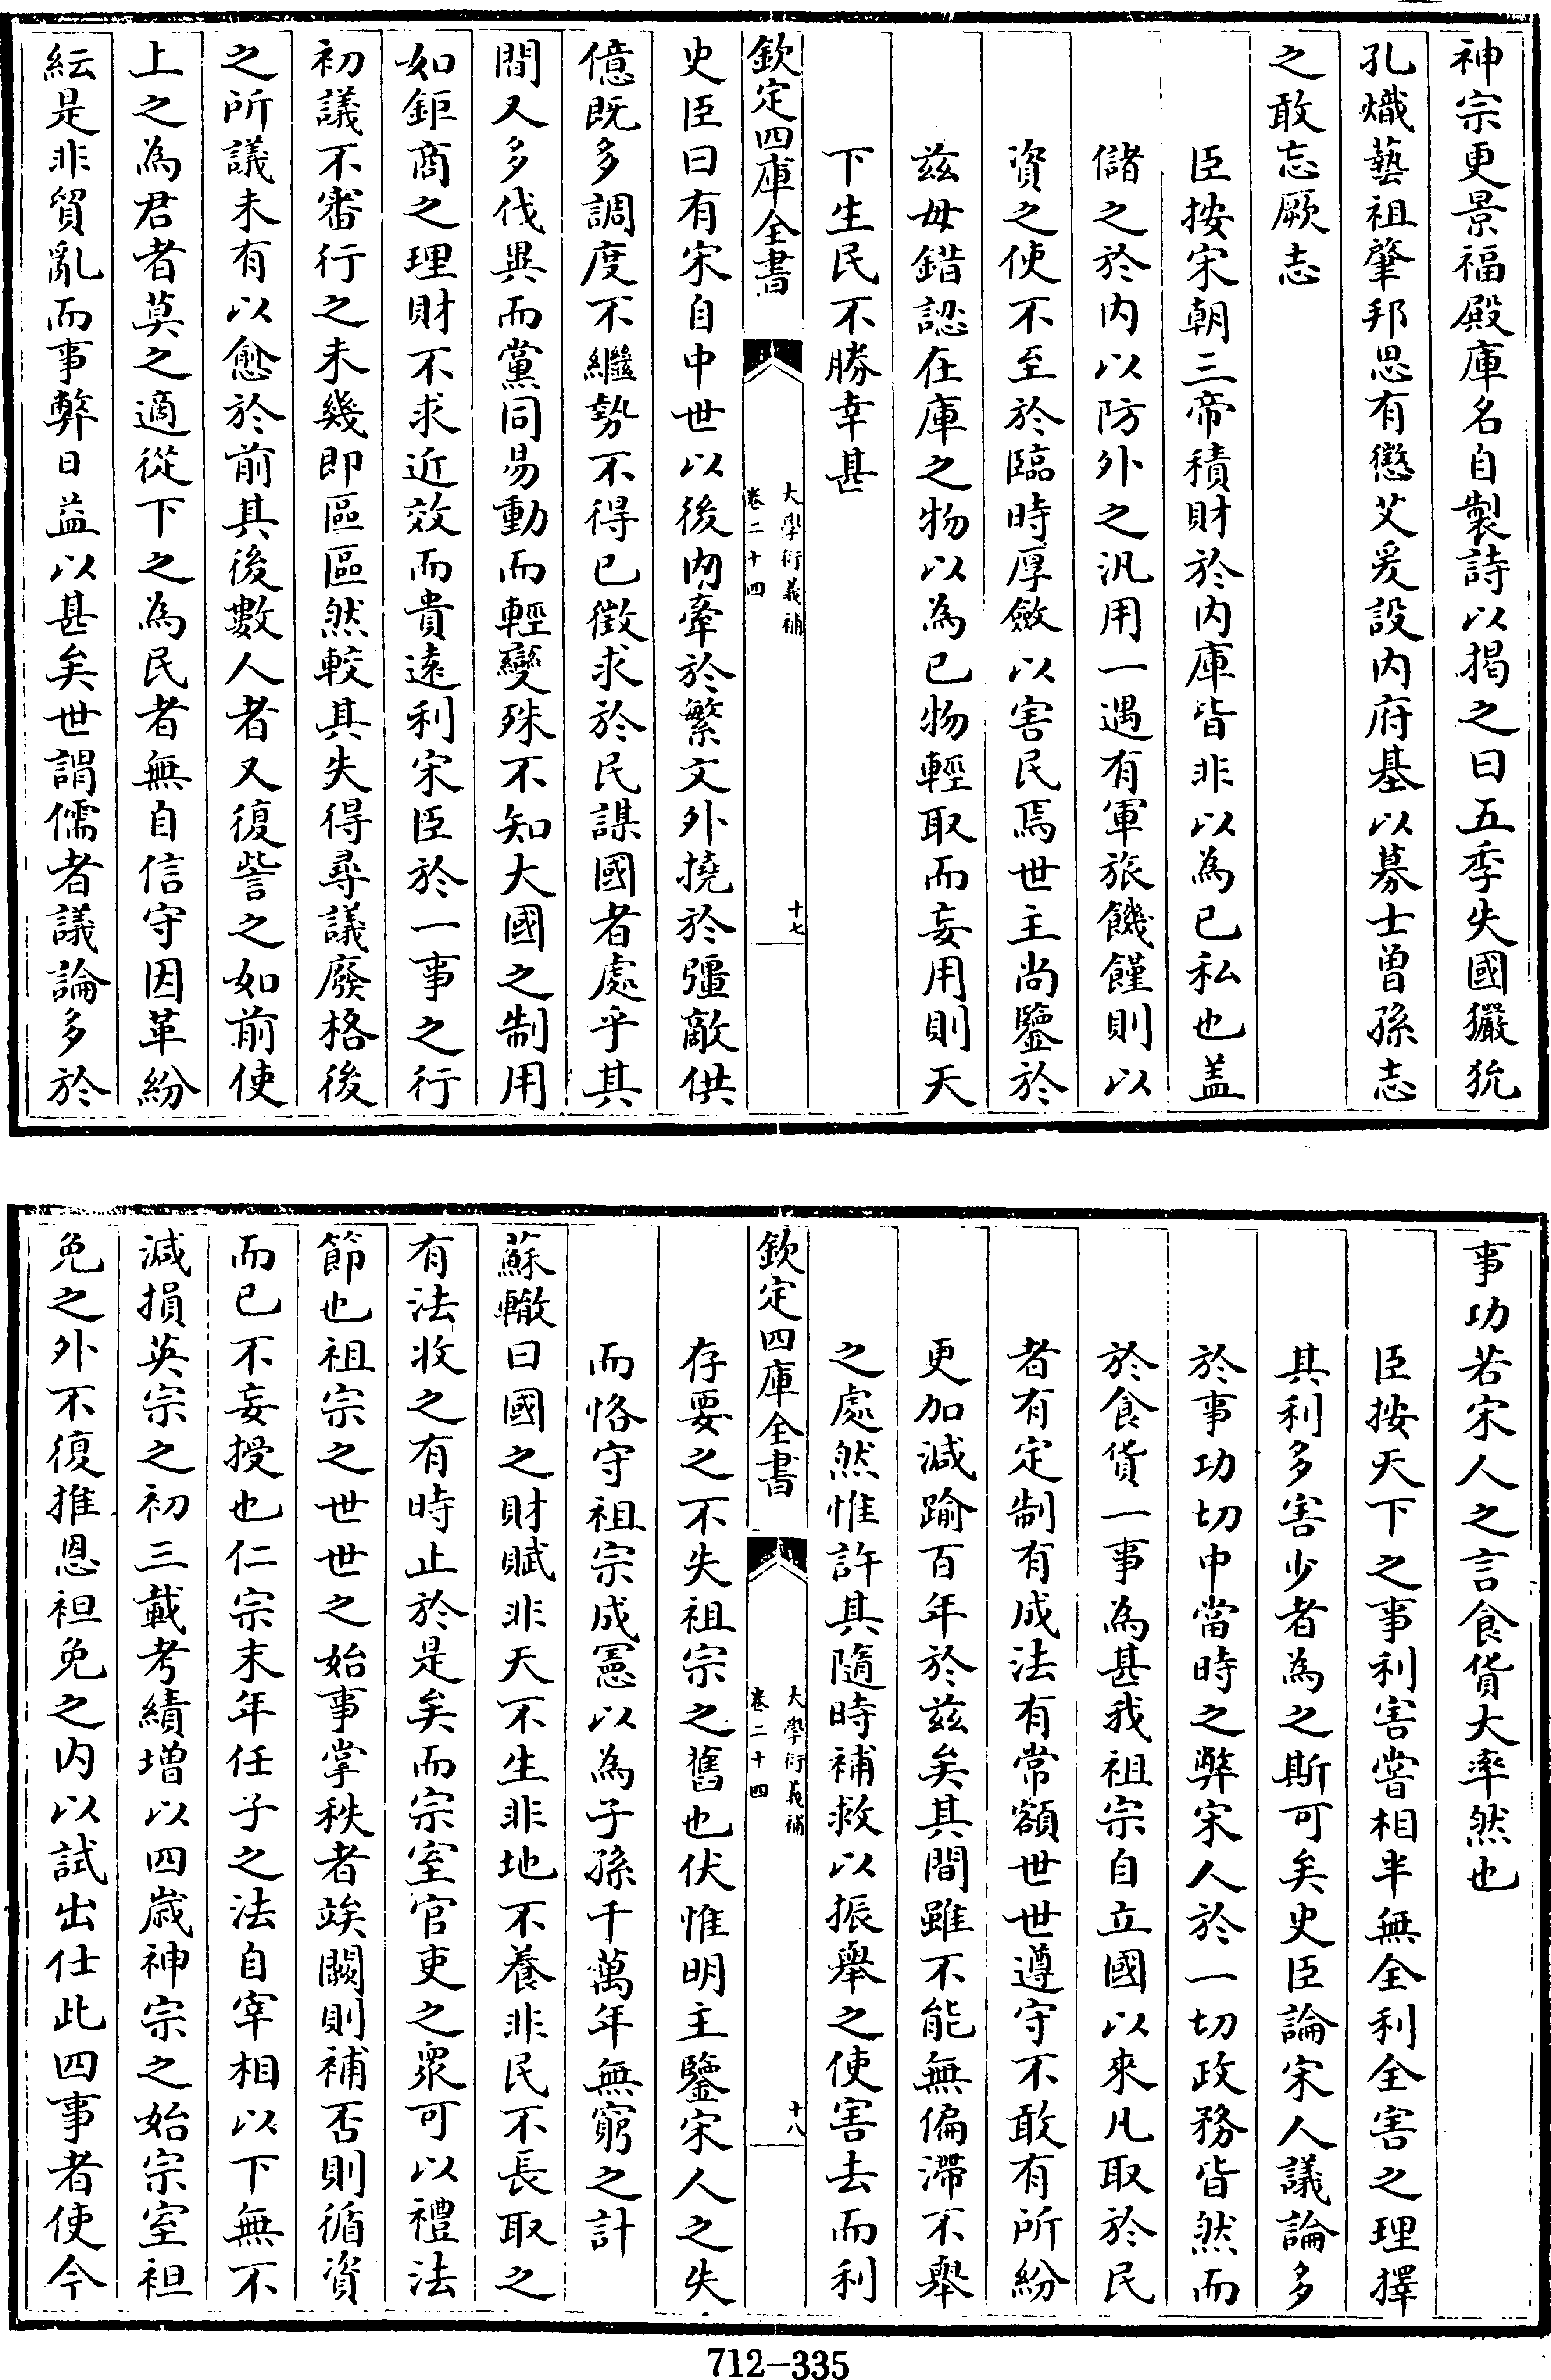 神宗更景福殿庫名自製詩以揭之曰五季失國玁狁
孔熾藝祖肇邦思有懲艾爰設内府基以募士曽孫志
之敢忘厥志
臣按宋朝三帝積財於内庫皆非以為已私也盖
儲之於内以防外之汎用一遇有軍旅饑饉則以
資之使不至於臨時厚斂以害民焉世主尚鑒於
兹毋錯認在庫之物以為已物輕取而妄用則天
下生民不勝幸甚
欽定四庫全書
大學衍義補
卷二十四
十七
史臣曰有宋自中世以後内牽於繁文外撓於彊敵供
億既多調度不繼勢不得已徵求於民謀國者處乎其
間又多伐異而黨同易動而輕變殊不知大國之制用
如鉅商之理財不求近效而貴遠利宋臣於一事之行
初議不審行之未幾即區區然較其失得尋議廢格後
之所議未有以愈於前其後數人者又復訾之如前使
上之為君者莫之適從下之為民者無自信守因革紛
紜是非貿亂而事弊日益以甚矣世謂儒者議論多於
事功若宋人之言食貨大率然也
臣按天下之事利害嘗相半無全利全害之理擇
其利多害少者為之斯可矣史臣論宋人議論多
於事功切中當時之弊宋人於一切政務皆然而
於食貨一事為甚我祖宗自立國以來凡取於民
者有定制有成法有常額世世遵守不敢有所紛
更加減踰百年於兹矣其間雖不能無偏滯不舉
之處然惟許其隨時補救以振舉之使害去而利
欽定四庫全書
大學衍義補
卷二十四
十八
存要之不失祖宗之舊也伏惟明主鑒宋人之失
而恪守祖宗成憲以為子孫千萬年無窮之計
蘇轍曰國之財賦非天不生非地不養非民不長取之
有法收之有時止於是矣而宗室官吏之衆可以禮法
節也祖宗之世世之始事掌秩者竢闕則補否則循資
而已不妄授也仁宗末年任子之法自宰相以下無不
減損英宗之初三載考績增以四歲神宗之始宗室袒
免之外不復推恩袒免之内以試出仕此四事者使今
712—335